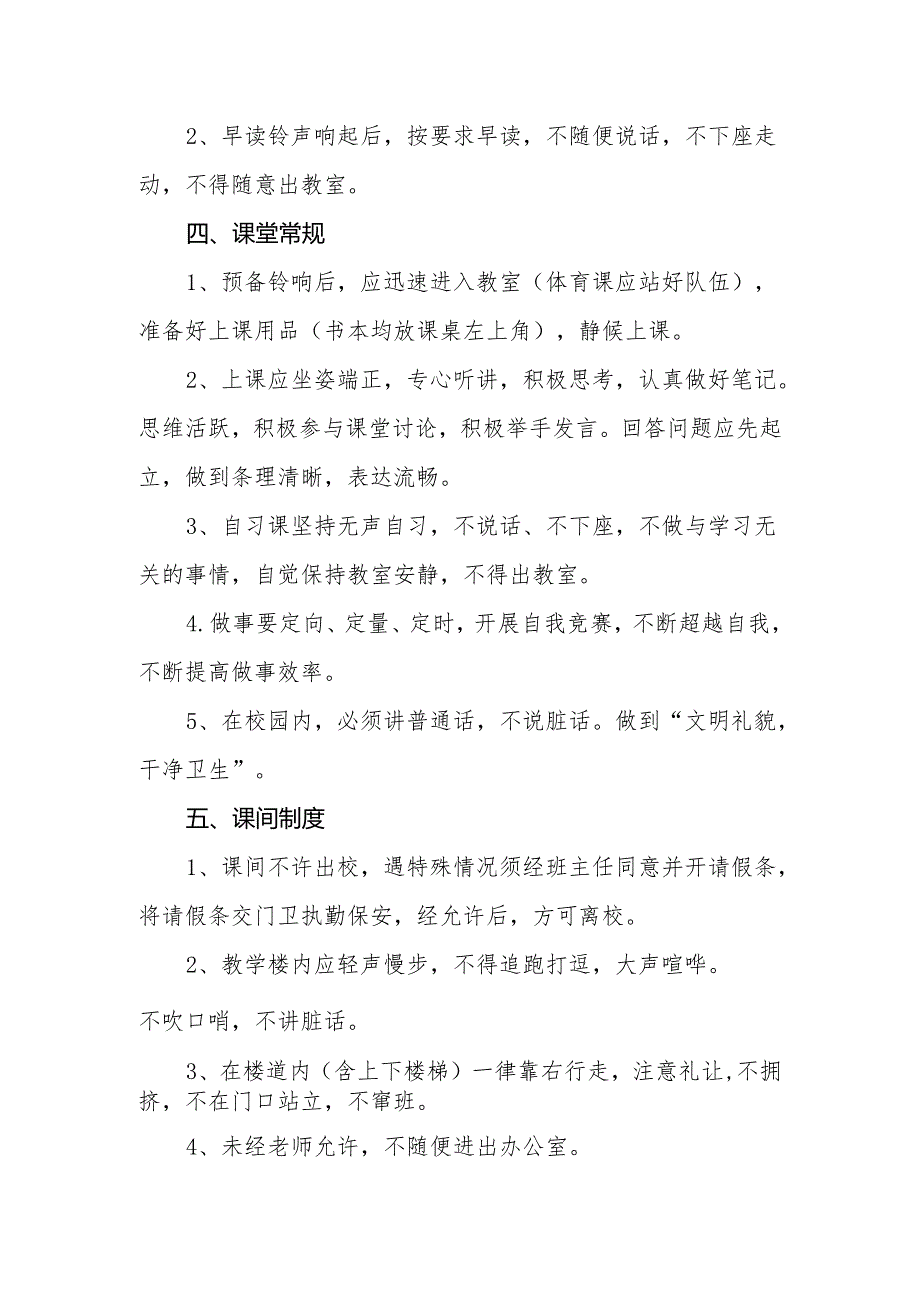 2、早读铃声响起后，按要求早读，不随便说话，不下座走
动，不得随意出教室。
四、课堂常规
1、预备铃响后，应迅速进入教室（体育课应站好队伍），
准备好上课用品（书本均放课桌左上角），静候上课。
2、上课应坐姿端正，专心听讲，积极思考，认真做好笔记。
思维活跃，积极参与课堂讨论，积极举手发言。回答问题应先起
立，做到条理清晰，表达流畅。
3、自习课坚持无声自习，不说话、不下座，不做与学习无
关的事情，自觉保持教室安静，不得出教室。
4.做事要定向、定量、定时，开展自我竞赛，不断超越自我，
不断提高做事效率。
5、在校园内，必须讲普通话，不说脏话。做到“文明礼貌，
干净卫生”。
五、课间制度
1、课间不许出校，遇特殊情况须经班主任同意并开请假条，
将请假条交门卫执勤保安，经允许后，方可离校。
2、教学楼内应轻声慢步，不得追跑打逗，大声喧哗。
不吹口哨，不讲脏话。
3、在楼道内（含上下楼梯）一律靠右行走，注意礼让,不拥
挤，不在门口站立，不窜班。
4、未经老师允许，不随便进出办公室。